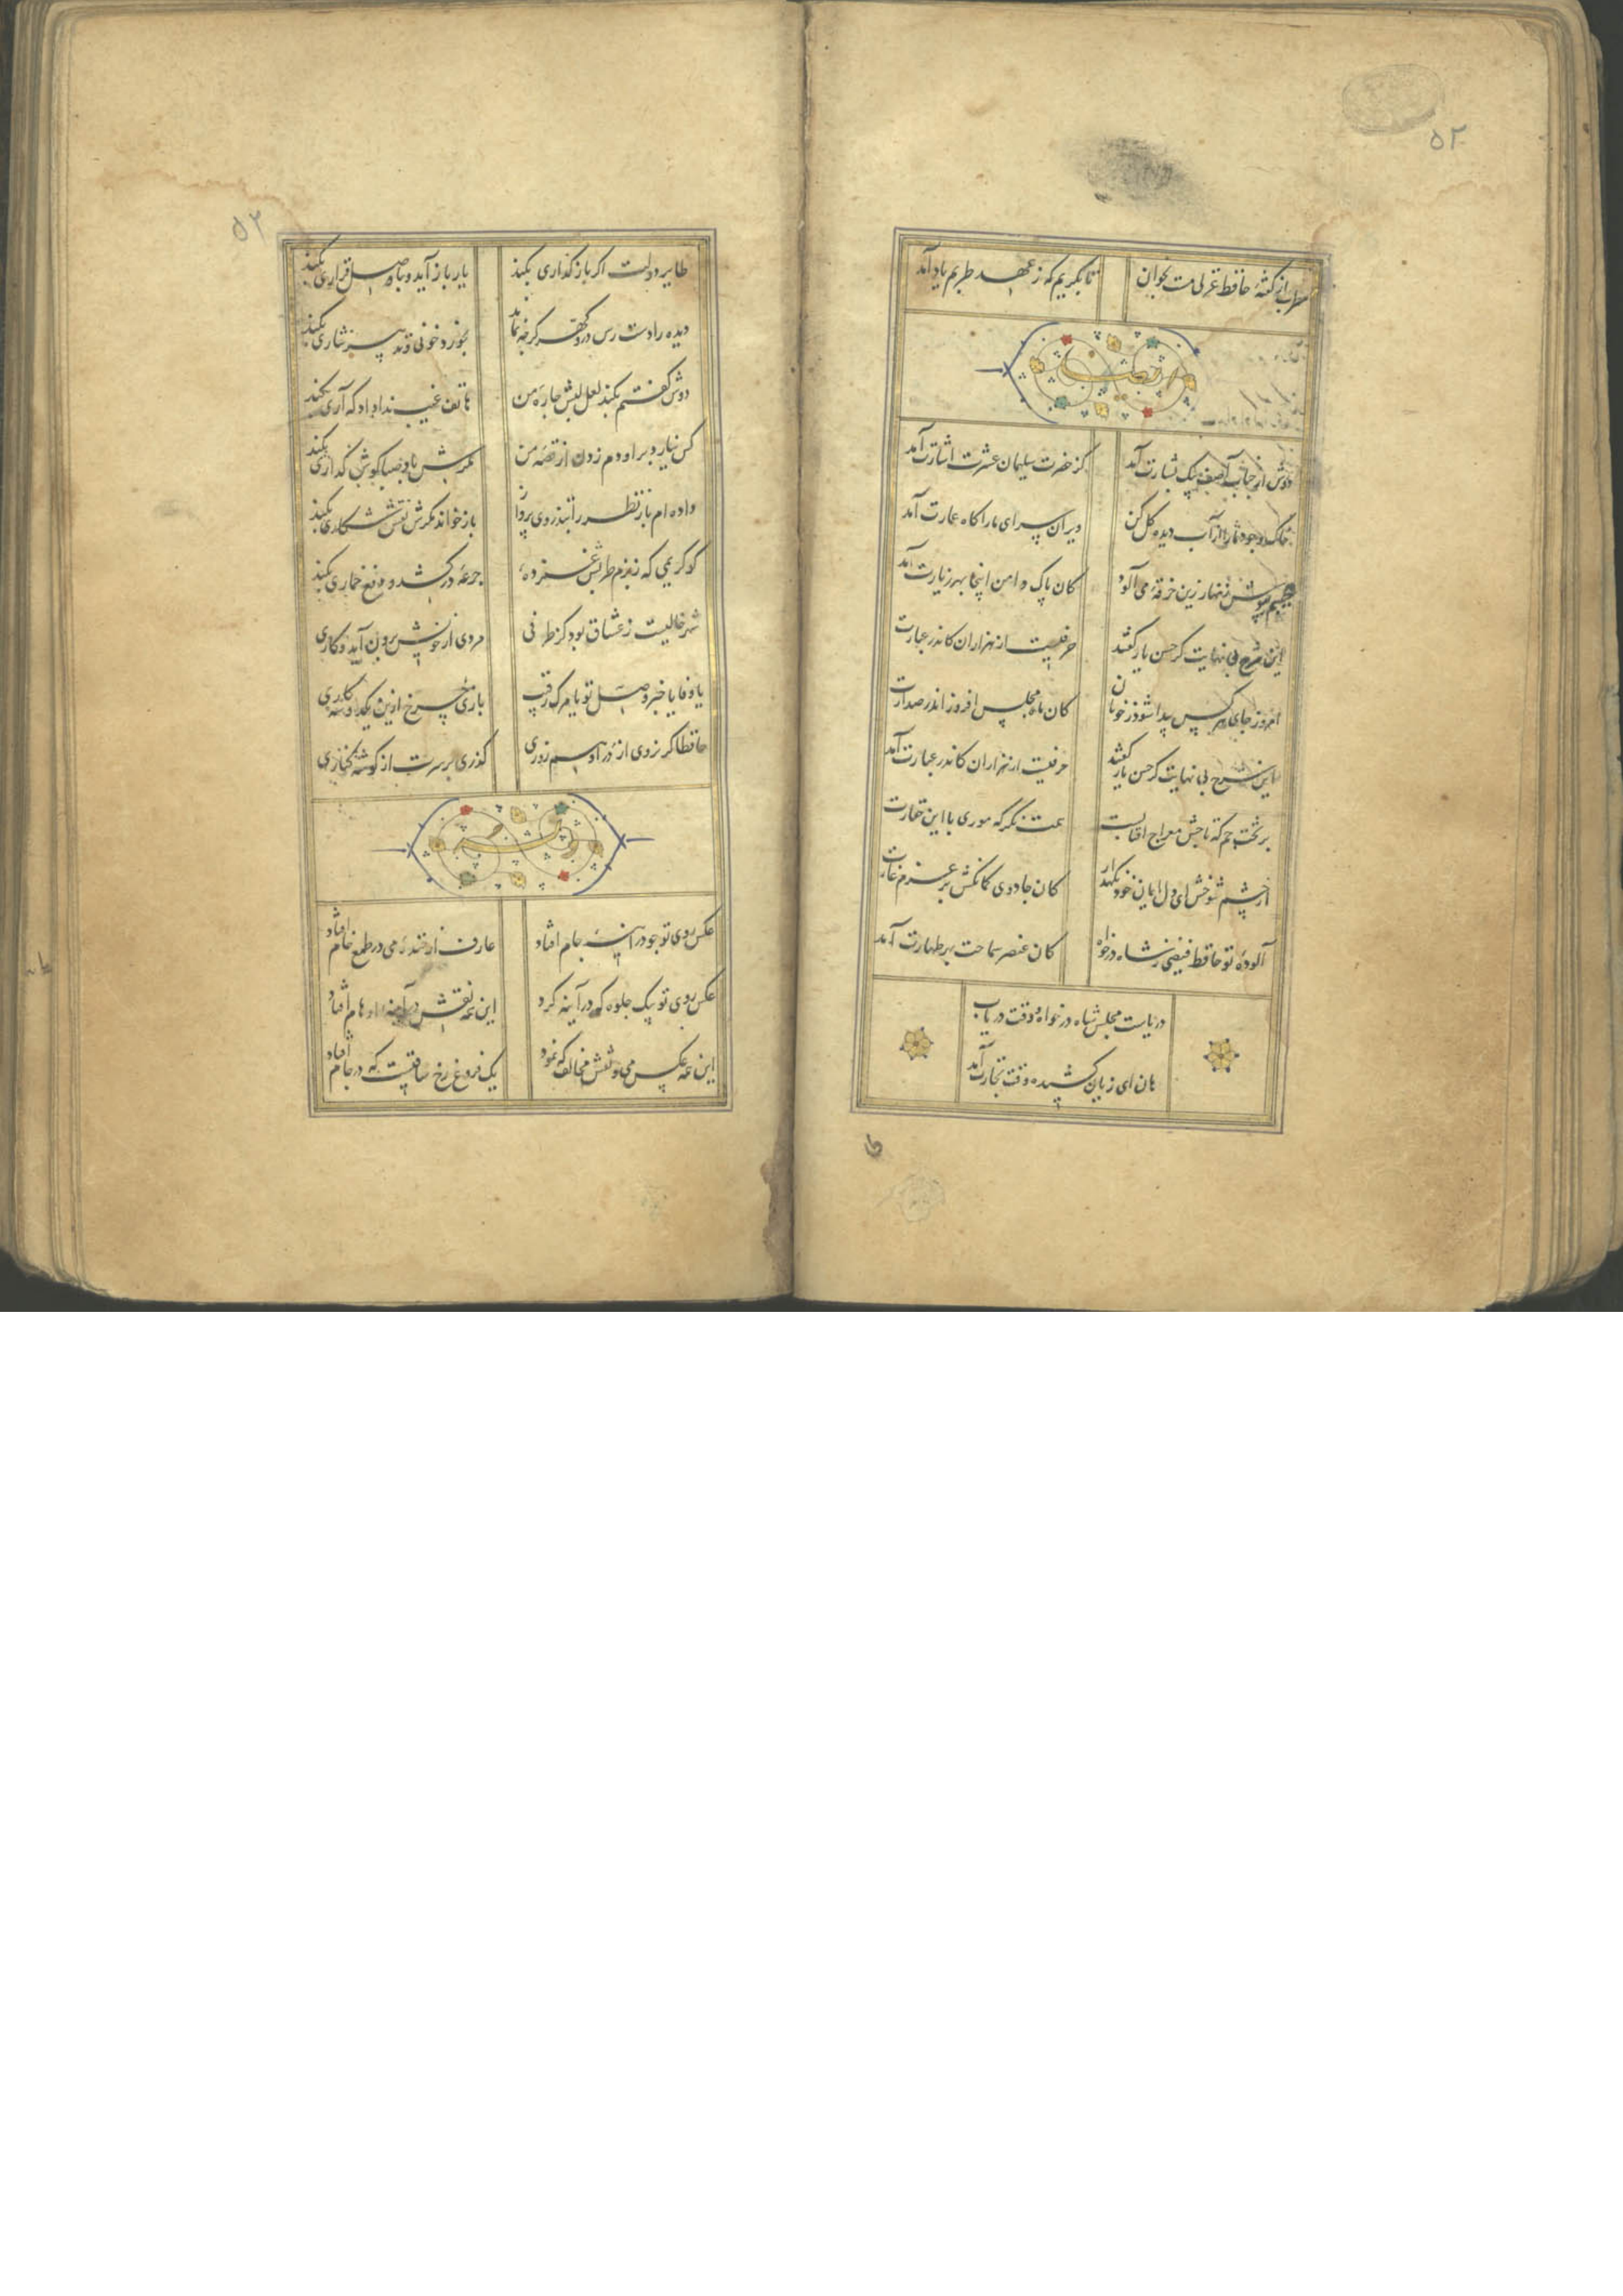 ۵۲
مطرب از گفتهٔ حافظ غزلی مست بخوان
تا بگریم که ز عهد طربم یاد آمد
دوش از جناب آصف پیک بشارت آمد
کز حضرت سلیمان عشرت اشارت آمد
خاک وجود ما را از آب دیده گل کن
ویران سرای ما را گاه عمارت آمد
عیبم بپوش زنهار زین خرقهٔ می آلود
کان پاک دامن اینجا بهر زیارت آمد
این شرح بی نهایت کز حسن یار گفتند
حرفیست از هزاران کاندر عبارت
امروز جای هر کس پیدا شود ز خوبان
کان ماه مجلس افروز اندر صدارت
این شرح بی نهایت کز حسن یار گفتند
حرفیست از هزاران کاندر عبارت آمد
بر تخت جم که تاجش معراج آفتابست
همت نگر که موری با این حقارت
از چشم شوخش ای دل ایمان خود نگهدار
کان جادوی کمانکش بر عزم غارت
آلودهٔ تو حافظ فیضی ز شاه در خواه
کان عنصر سماحت بهر طهارت آمد
دریاست مجلس شاه در خواه و وقت دریاب
هان ای زیان کشیده وقت تجارت آمد
۵۲
طایر دولت اگر باز گذاری بکند
یار باز آید و با وصل قراری بکند
دیده را دست رس در و گهر گرچه نماند
بخورد خونی و تدبیر نثاری بکند
دوش گفتم بکند لعل لبش چارهٔ من
هاتف غیب ندا داد که آری بکند
کس نیارد بر او دم زدن از قصهٔ من
مگرش باد صبا گوش گذاری بکند
داده ام باز نظر را بتذروی پرواز
باز خواند مگرش نقش شکاری بکند
کو کریمی که ز بزم طربش غمزده
جرعهٔ در کشد و دفع خماری بکند
شهر خالیست ز عشاق بود کز طرفی
مردی از خویش برون آید و کاری
یا وفا یا خبر وصل تو یا مرگ رقیب
بازی چرخ ازین یک دو سه کاری
حافظا گر نروی از در او هم روزی
گذری بر سرت از گوشه کناری
عکس روی تو چو در آینهٔ جام افتاد
عارف از خندهٔ می در طمع خام افتاد
عکس روی تو بیک جلوه که در آینه کرد
این همه نقش در آینه اوهام افتاد
این همه عکس می و نقش مخالف که نمود
یک فروغ رخ ساقیست که در جام افتاد